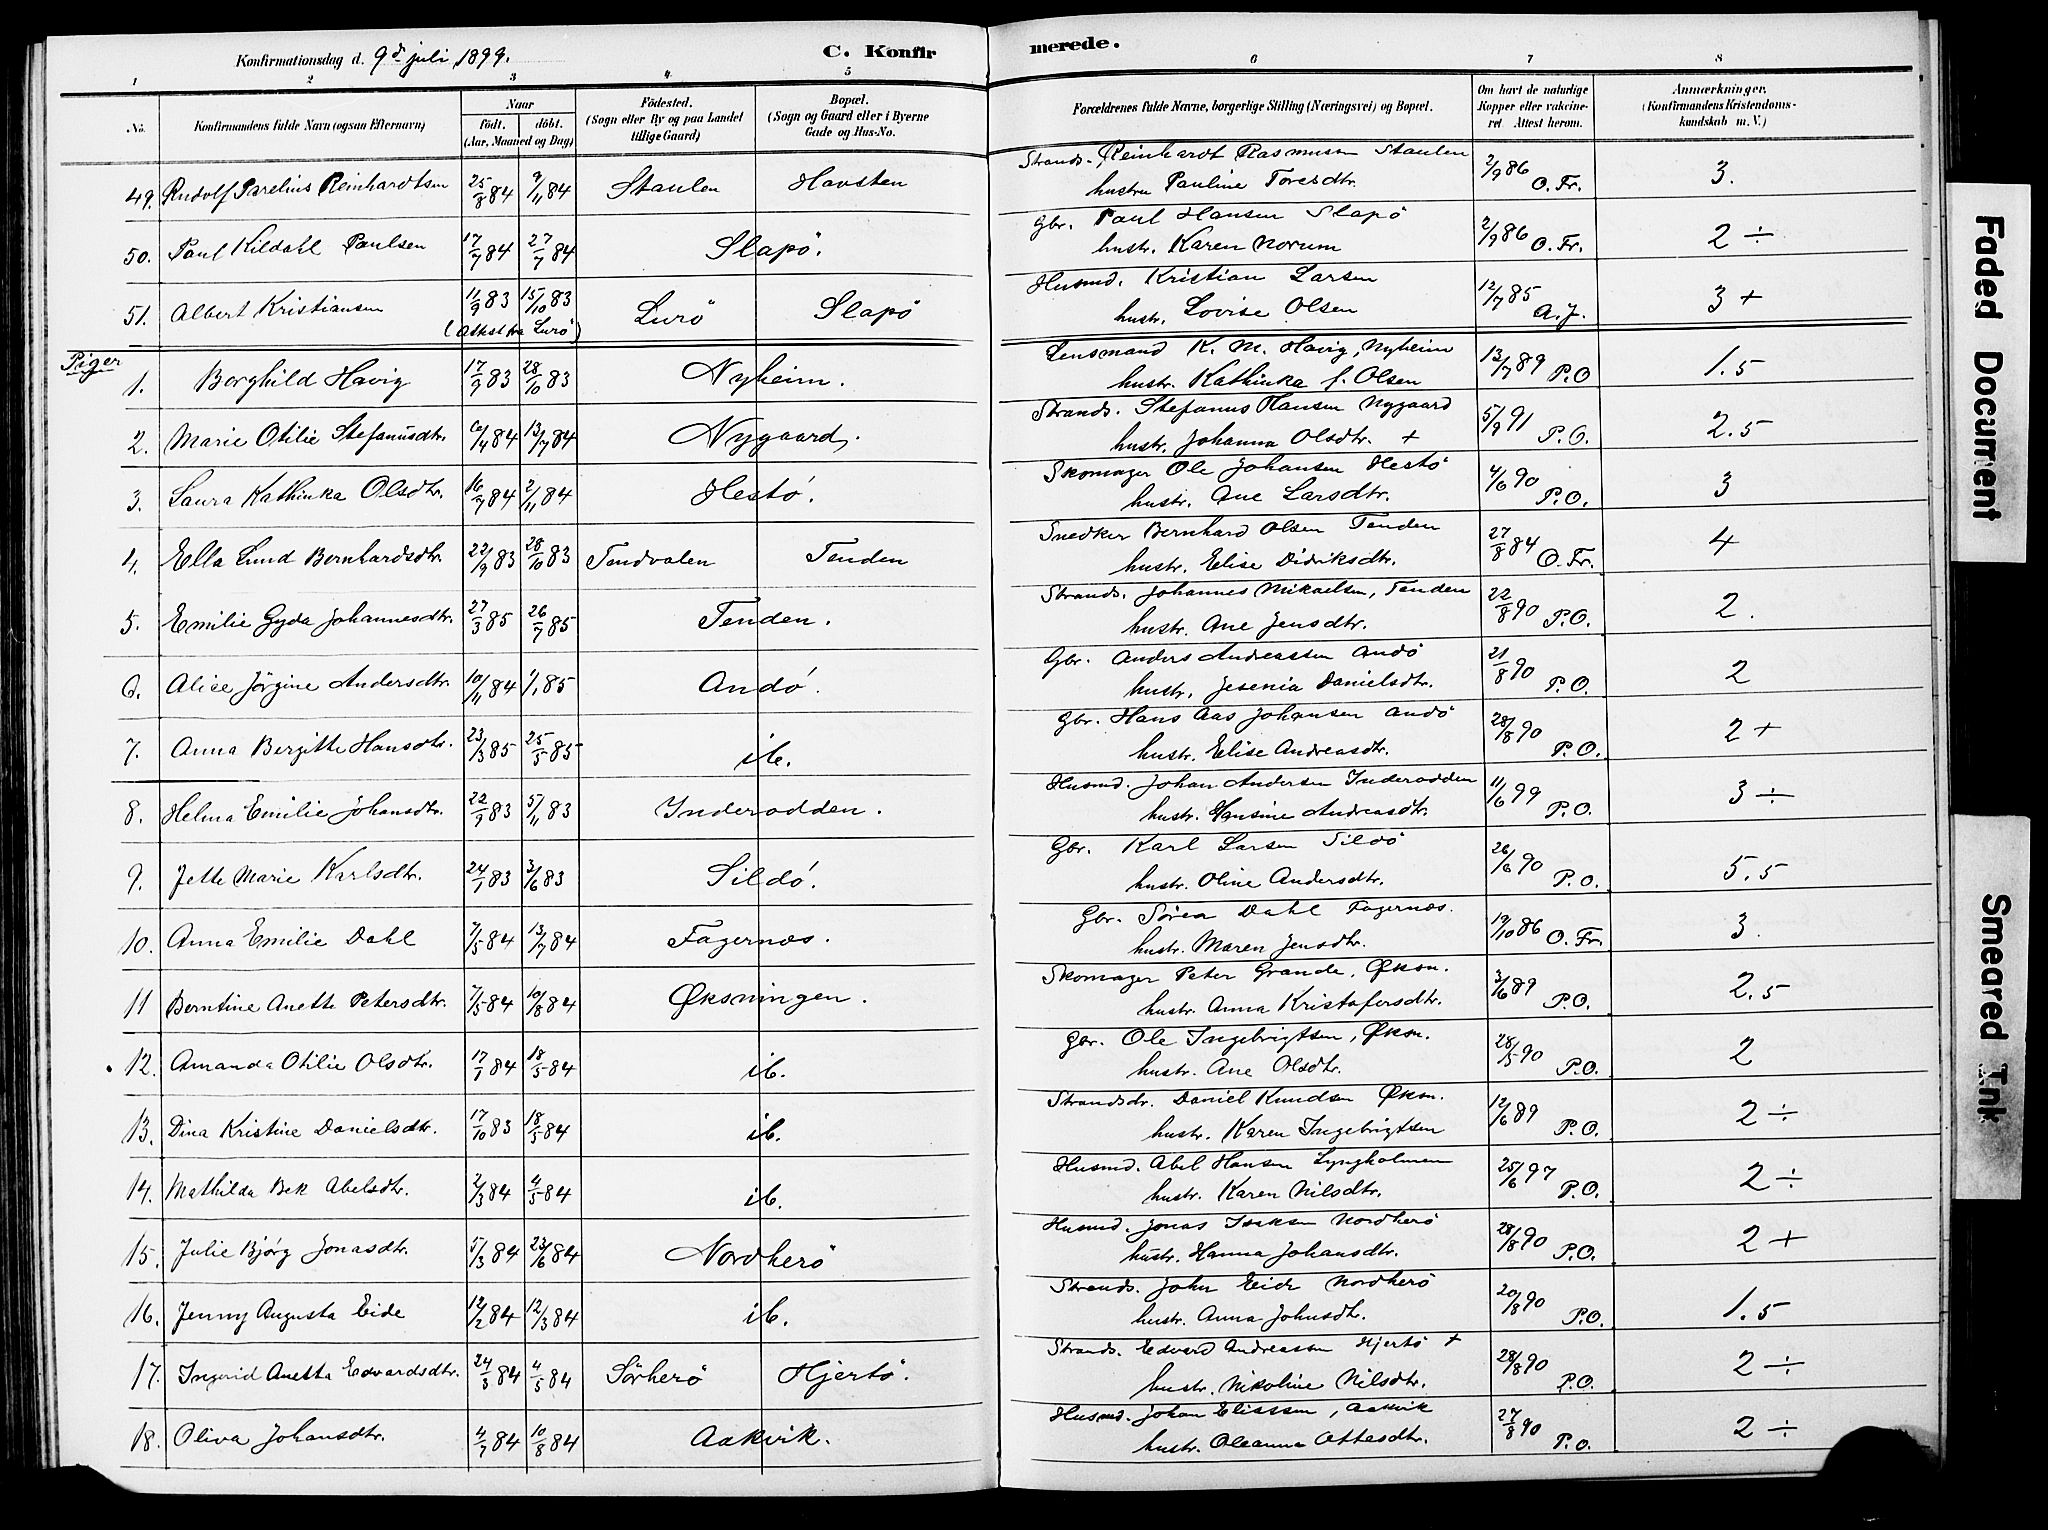 Konfirmationsdag d. 9de juli 1899.
C. Konfirmerede.
1 2 3 4 5 6 7 8
No. Konfirmandens fulde Navn (ogsaa Efternavn) Naar födt. döbt. (Aar, Maaned og Dag) Födested. (Sogn eller By og paa Landet tillige Gaard) Bopæl. (Sogn og Gaard eller i Byerne Gade og Hus-No. Forældrenes fulde Navne, borgerlige Stilling (Næringsvei) og Bopæl. Om havt de naturlige Kopper eller vakcineret. Attest herom. Anmærkninger. (Konfirmandens Kristendomskundskab m. V.)
49. Rudolf Parelius Reinhardtsen 25/8 84 9/11 84 Staulen Havsten Strands. Reinhardt Rasmussen Staulen hustru Pauline Toresdtr. 2/9 86 O. Fr. 3.
50. Paul Kildahl Paulsen 17/7 84 27/7 84 Slapö. Gbr. Paul Hansen Slapö hustr. Karen Norum 2/9 86 O. Fr. 2 ÷
51. Albert Kristiansen 11/9 83 15/10 83 (Attest fra Lurö) Lurö Slapö Husmd. Kristian Larsen hustr. Lovise Olsen 12/7 85 A. J. 3 +
Piger
1. Borghild Havig 17/9 83 28/10 83 Nyheim. Lensmand K. M. Havig, Nyheim hustr. Kathinka f. Olsen 13/7 89 P.O 1.5
2. Marie Otilie Stefanusdtr. 10/4 84 13/7 84 Nygaard. Strands. Stefanus Hansen Nygaard hustr. Johanna Olsdtr. + 5/9 91 P.O. 2.5
3. Laura Kathinka Olsdtr. 16/7 84 2/11 84 Hestö. Skomager Ole Johansen Hestö hustr. Ane Larsdtr. 4/6 90 P.O. 3
4. Ella Lund Bernhardsdtr. 22/9 83 28/10 83 Tendvalen Tenden Snedker Bernhard Olsen Tenden hustr. Elise Didriksdtr. 27/8 84 O. Fr. 4
5. Emilie Gyda Johannesdtr. 27/3 85 26/7 85 Tenden. Strands. Johannes Mikaelsen, Tenden hustr. Ane Jensdtr. 22/8 90 P.O. 2.
6. Alice Jörgine Andersdtr. 10/11 84 1/1 85 Andö. Gbr. Anders Andreassen Andö hustr. Jesenia Danielsdtr. 21/8 90 P.O. 2
7. Anna Bergitte Hansdtr. 23/3 85 25/5 85 ib. Gbr. Hans Aas Johansen Andö hustr. Elise Andreasdtr. 28/8 90 P.O. 2 +
8. Helma Emilie Johansdtr. 22/9 83 5/11 83 Inderodden. Husmd. Johan Andersen Inderodden hustr. Hansine Andreasdtr. 11/6 99 P.O. 3 ÷
9. Jette Marie Karlsdtr. 24/1 83 3/6 83 Sildö. Gbr. Karl Larsen Sildö hustr. Oline Andersdtr. 26/6 90 P.O. 5.5
10. Anna Emilie Dahl 7/5 84 13/7 84 Fagernæs. Gbr. Sören Dahl Fagernæs. hustr. Maren Jensdtr. 19/10 86 O. Fr. 3.
11 Berntine Anette Petersdtr. 7/5 84 10/8 84 Øksningen. Skomager Peter Grande, Øksn. hustr. Anna Kristofersdtr. 3/6 89 P.O. 2.5
12. Amanda Otilie Olsdtr. 17/1 84 18/5 84 ib. Gbr. Ole Ingebrigtsen, Øksn. hustr. Ane Olsdtr. 28/5 90 P.O. 2
13. Dina Kristine Danielsdtr. 17/10 83 18/5 84 ib. Strandsdr. Daniel Knudsen Øksn. hustr. Karen Ingebrigtsen 12/6 89 P.O. 2 ÷
14. Mathilda Bek Abelsdtr. 2/3 84 4/5 84 ib. Husmd. Abel Hansen Lyngholmen hustr. Karen Nilsdtr. 25/6 97 P.O. 2 ÷
15. Julie Bjørg Jonasdtr. 5/3 84 23/6 84 Nordherö Husmd. Jonas Isaksen Nordherö hustr. Hanna Johansdtr. 28/8 90 P.O. 2 +
16. Jenny Augusta Eide 12/2 84 12/3 84 ib. Strands. John Eide Nordherö hustr. Anna Johnsdtr. 20/8 90 P.O. 1.5
17. Ingrid Anetta Edvardsdtr. 24/3 84 4/5 84 Sörherö Hjertö. Strands. Edvard Andreassen Hjertö + hustr. Nikoline Nilsdtr. 28/8 90 P.O. 2 ÷
18. Oliva Johansdtr. 4/7 84 10/8 84 Aakvik. Husmd. Johan Eliassen, Aakvik hustr. Oleanna Ottesdtr. 27/8 90 P.O. 2 ÷
Faded Document
Smeared Ink